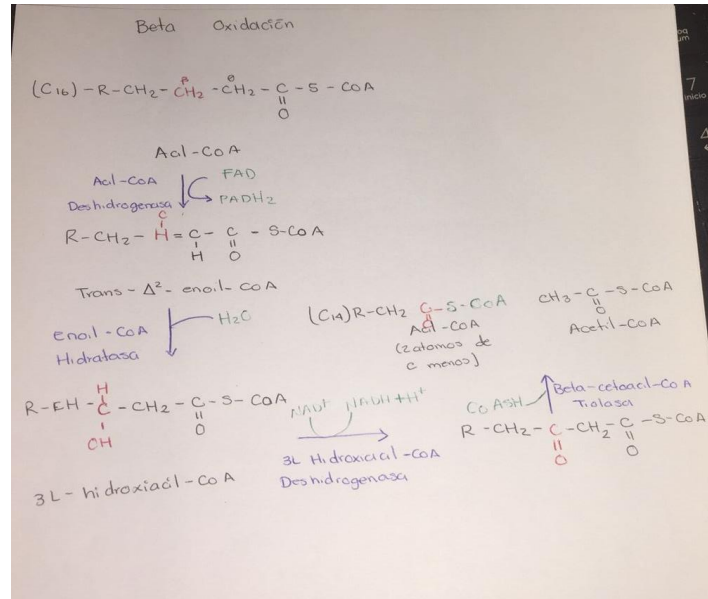 Beta Oxidación
(C16) - R - CH2 - CH2 - CH2 - C - S - CoA
β
α
O
Acil - CoA
Acil - CoA
Deshidrogenasa
FAD
PADH2
C
R - CH2 - H = C - C - S - CoA
H O
Trans - Δ² - enoil - CoA
enoil - CoA
Hidratasa
H2O
H
R - EH - C - CH2 - C - S - CoA
OH
O
3L - hidroxiacil - CoA
NAD+ NADH + H+
3L Hidroxiacil - CoA
Deshidrogenasa
R - CH2 - C - CH2 - C - S - CoA
O O
CoASH
Beta - cetoacil - CoA
Tiolasa
(C14) R - CH2 C - S - CoA
Acil - CoA
(2 atomos de
c menos)
CH3 - C - S - CoA
O
Acetil - CoA
7
Inicio